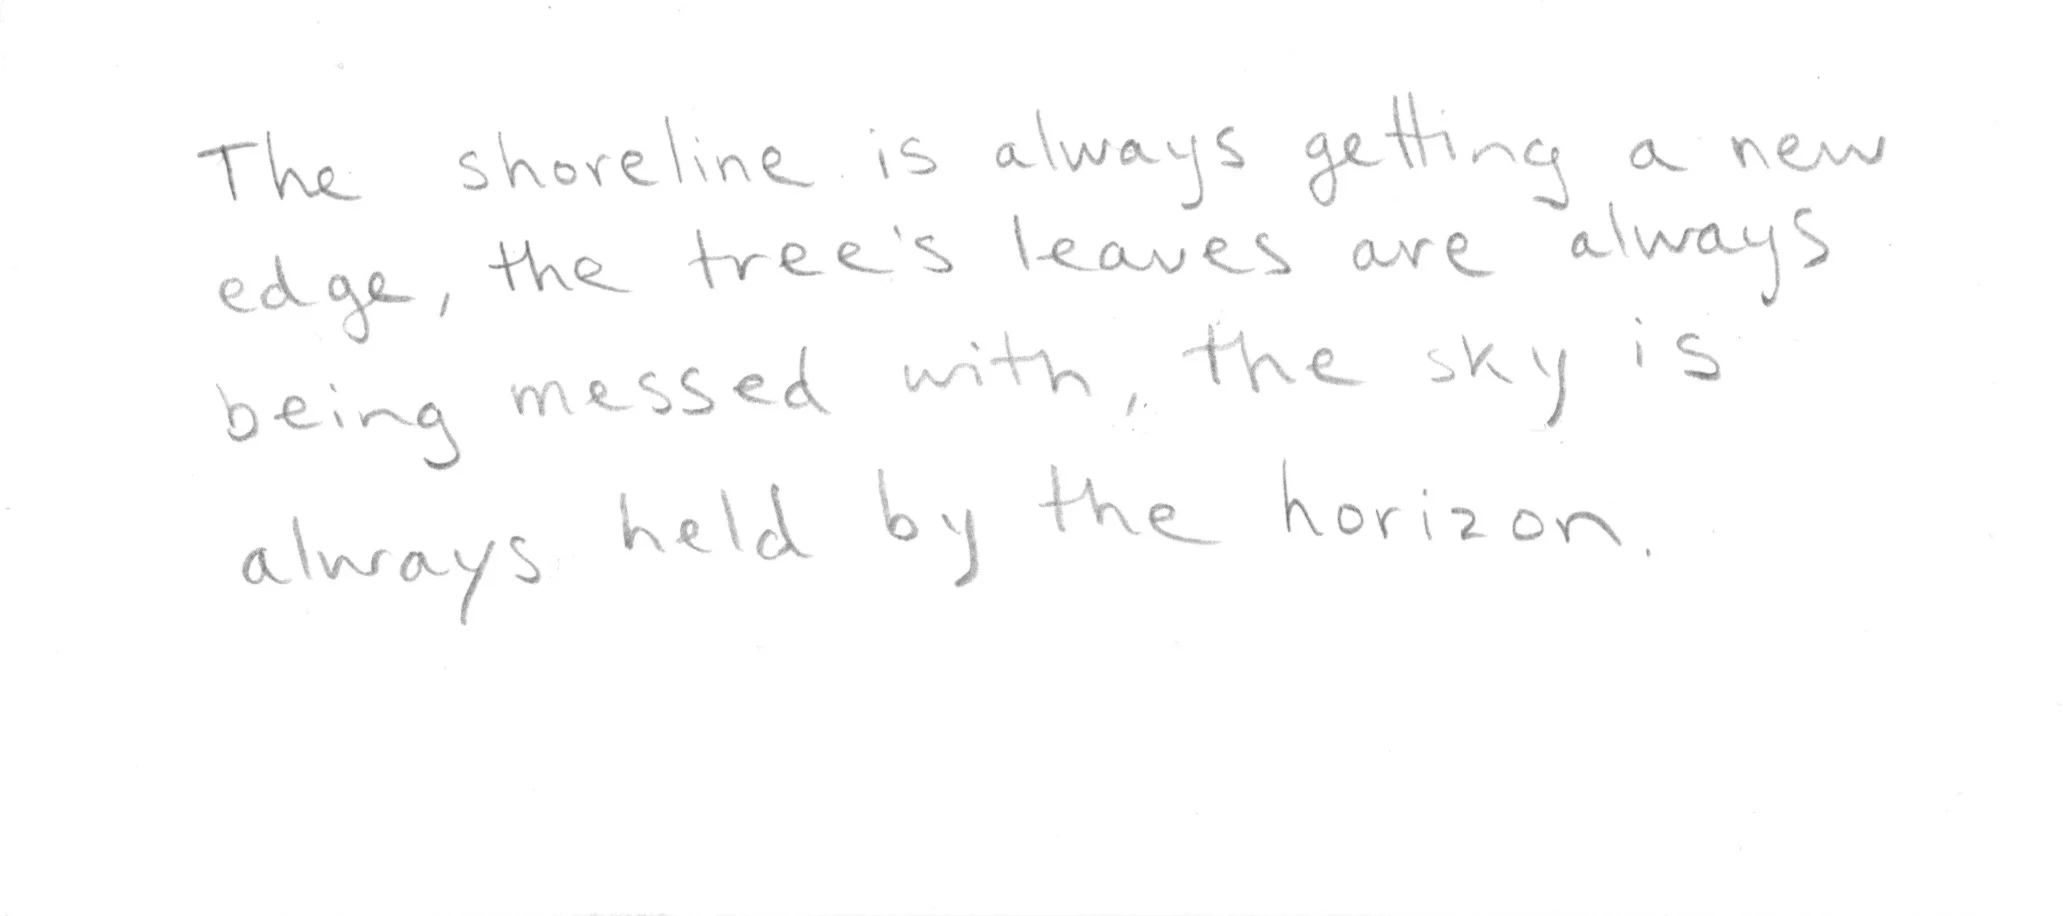 The shoreline is always getting a new
edge, the tree's leaves are always
being messed with, the sky is
always held by the horizon.